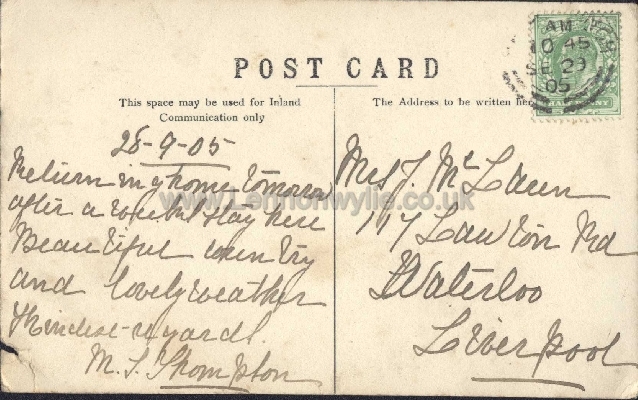 POST CARD
This space may be used for Inland
Communication only
The Address to be written here
AM
10 45
SE 29
05
28-9-05
Returning home tomorrow
after a stay here
Beautiful country
and lovely weather
Kindest regards.
M. S. Thompson
Mrs J. Mc Laren
117 Lawton Rd
Waterloo
Liverpool
www.Lennonwylie.co.uk